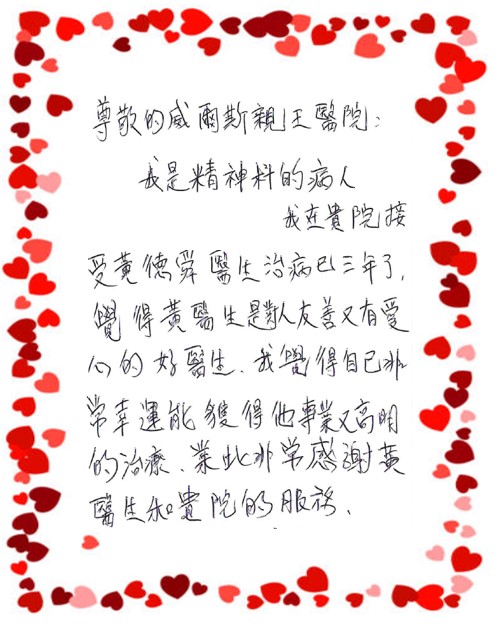 尊敬的威爾斯親王醫院：
我是精神科的病人
我在貴院接
受黃德舜醫生治病已三年了,
覺得黃醫生是對人友善又有愛
心的好醫生、我覺得自己非
常幸運能獲得他專業又高明
的治療、業此非常感謝黃
醫生和貴院的服務、